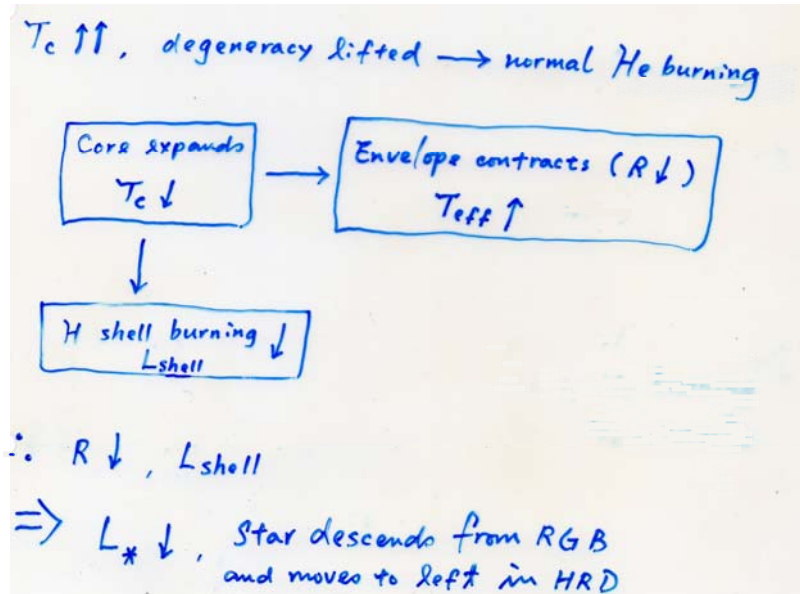 Tc ↑↑, degeneracy lifted → normal He burning
Core expands
Tc ↓
Envelope contracts (R↓)
Teff ↑
H shell burning ↓
Lshell
∴ R ↓, Lshell
⇒ L* ↓, Star descends from RGB
and moves to left in HRD